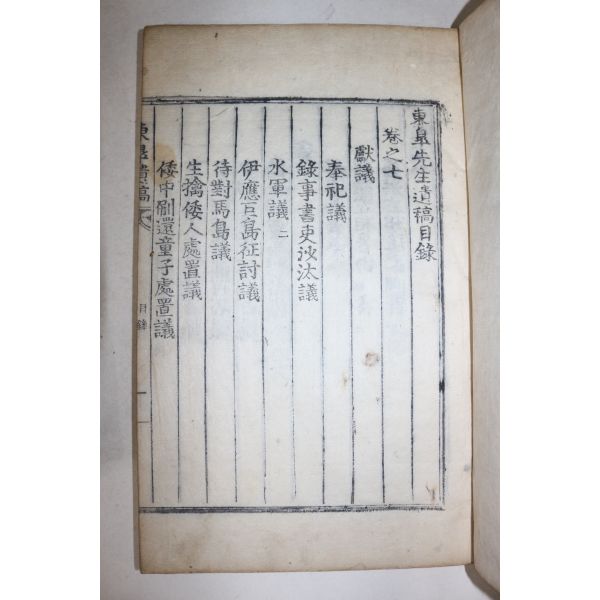 東皐先生遺稿目錄
卷之七
獻議
奉祀議
錄事書吏沙汰議
水軍議 二
伊應巨島征討議
待對馬島議
生擒倭人處置議
倭中刷還童子處置議
東皐遺稿
目錄